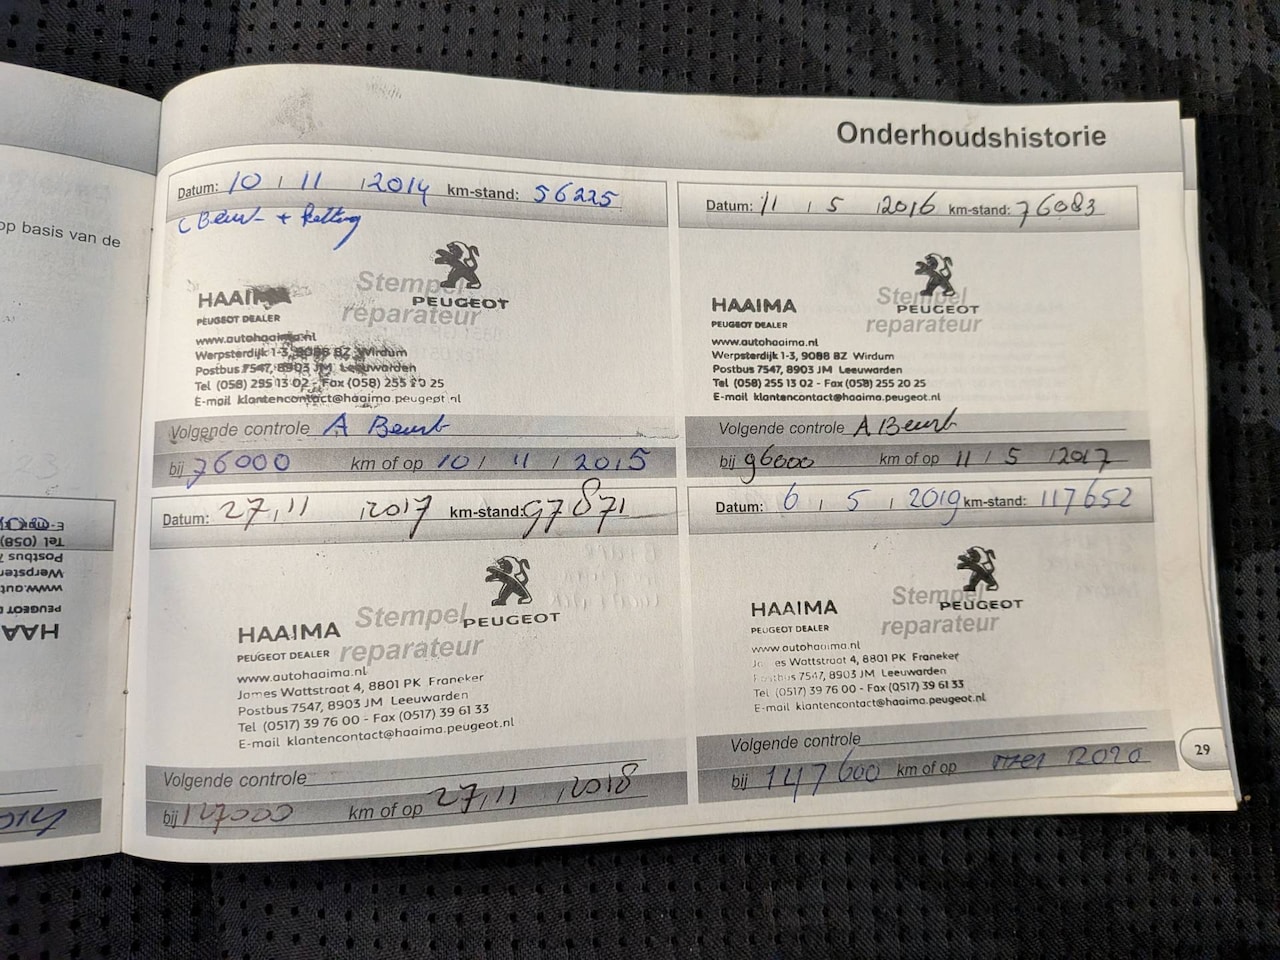 op basis van de
Onderhoudshistorie
Datum: 10 / 11 / 2014 km-stand: 56225
C Beurt + ketting
Stempel
reparateur
PEUGEOT
HAAIMA
PEUGEOT DEALER
www.autohaaima.nl
Werpsterdijk 1-3, 9088 BZ Wirdum
Postbus 7547, 8903 JM Leeuwarden
Tel (058) 255 13 02 - Fax (058) 255 20 25
E-mail klantencontact@haaima.peugeot.nl
Volgende controle A Beurt
bij 76000 km of op 10 / 11 / 2015
Datum: 11 / 5 / 2016 km-stand: 76083
Stempel
reparateur
PEUGEOT
HAAIMA
PEUGEOT DEALER
www.autohaaima.nl
Werpsterdijk 1-3, 9088 BZ Wirdum
Postbus 7547, 8903 JM Leeuwarden
Tel (058) 255 13 02 - Fax (058) 255 20 25
E-mail klantencontact@haaima.peugeot.nl
Volgende controle A Beurt
bij 96000 km of op 11 / 5 / 2017
Datum: 27 / 11 / 2017 km-stand: 97871
Stempel
reparateur
PEUGEOT
HAAIMA
PEUGEOT DEALER
www.autohaaima.nl
James Wattstraat 4, 8801 PK Franeker
Postbus 7547, 8903 JM Leeuwarden
Tel (0517) 39 76 00 - Fax (0517) 39 61 33
E-mail klantencontact@haaima.peugeot.nl
Volgende controle
bij 127000 km of op 27 / 11 / 2018
Datum: 6 / 5 / 2019 km-stand: 117652
Stempel
reparateur
PEUGEOT
HAAIMA
PEUGEOT DEALER
www.autohaaima.nl
James Wattstraat 4, 8801 PK Franeker
Postbus 7547, 8903 JM Leeuwarden
Tel (0517) 39 76 00 - Fax (0517) 39 61 33
E-mail klantencontact@haaima.peugeot.nl
Volgende controle
bij 147600 km of op mei 2020
29
E-mail
Tel (058)
Postbus 7
Werpster
www.auto
PEUGEOT D
HAA